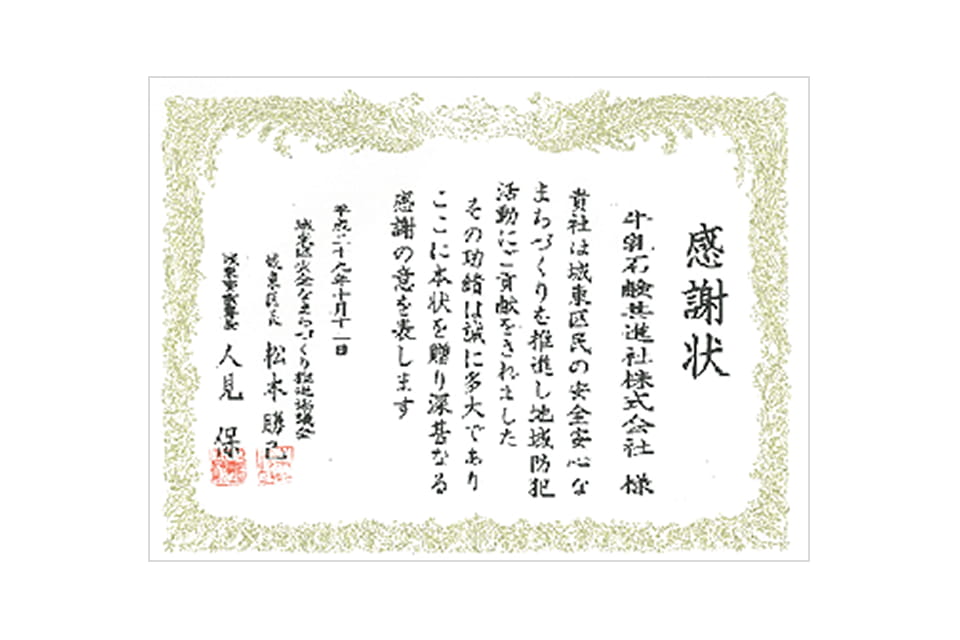 感謝状
牛乳石鹸共進社株式会社 様
貴社は城東区民の安全安心な
まちづくりを推進し地域防犯
活動にご貢献をされました
その功績は誠に多大であり
ここに本状を贈り深甚なる
感謝の意を表します
平成二十九年十月十一日
城東区安全なまちづくり推進協議会
城東区長 松本勝己
城東警察署長 人見 保